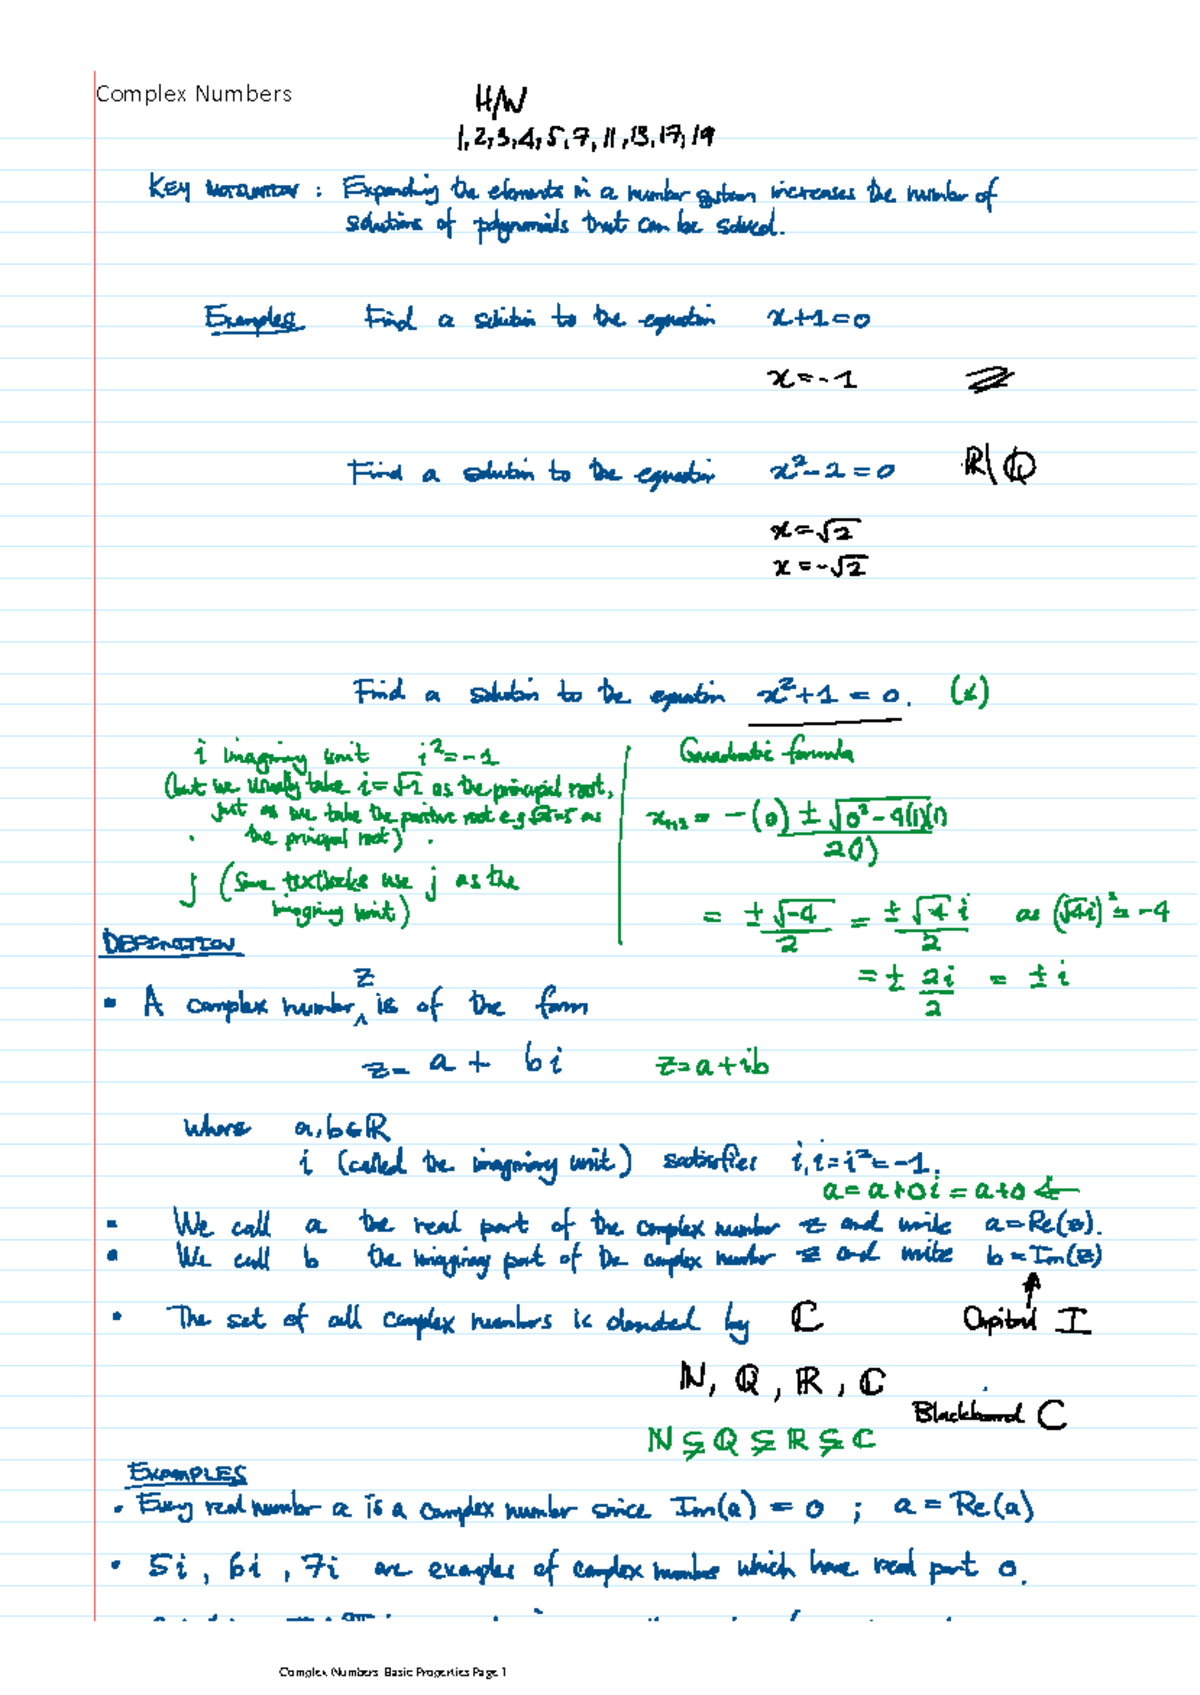 Complex Numbers
H/W
1, 2, 3, 4, 5, 7, 11, 13, 17, 19
KEY MOTIVATION : Expanding the elements in a number system increases the number of
solutions of polynomials that can be solved.
Examples Find a solution to the equation x+1=0
x=-1
Find a solution to the equation x²-2=0 ℝ\ℚ
x=√2
x=-√2
Find a solution to the equation x²+1=0. (*)
i imaginary unit i²=-1
(but we usually take i=√-1 as the principal root,
just as we take the positive root e.g √25=5 as
the principal root).
j (Some textbooks use j as the
imaginary unit)
Quadratic formula
= -(0) ± √0²-4(1)(1)
2(1)
= ±√-4 / 2 = ±√4 i / 2 as (√4i)²=-4
= ± 2i / 2 = ± i
DEFINITION
• A complex number z is of the form
z= a + bi z=a+ib
where a,b∈ℝ
i (called the imaginary unit) satisfies i.i=i²=-1.
a=a+0i=a+0 ←
• We call a the real part of the complex number z and write a=Re(z).
• We call b the imaginary part of the complex number z and write b=Im(z)
• The set of all complex numbers is denoted by ℂ Capital I
ℕ, ℚ, ℝ, ℂ
Blackboard C
ℕ⊊ℚ⊊ℝ⊊ℂ
EXAMPLES
• Every real number a is a complex number since Im(a) = 0 ; a = Re(a)
• 5i, 6i, 7i are examples of complex number which have real part 0.
Complex Numbers Basic Properties Page 1